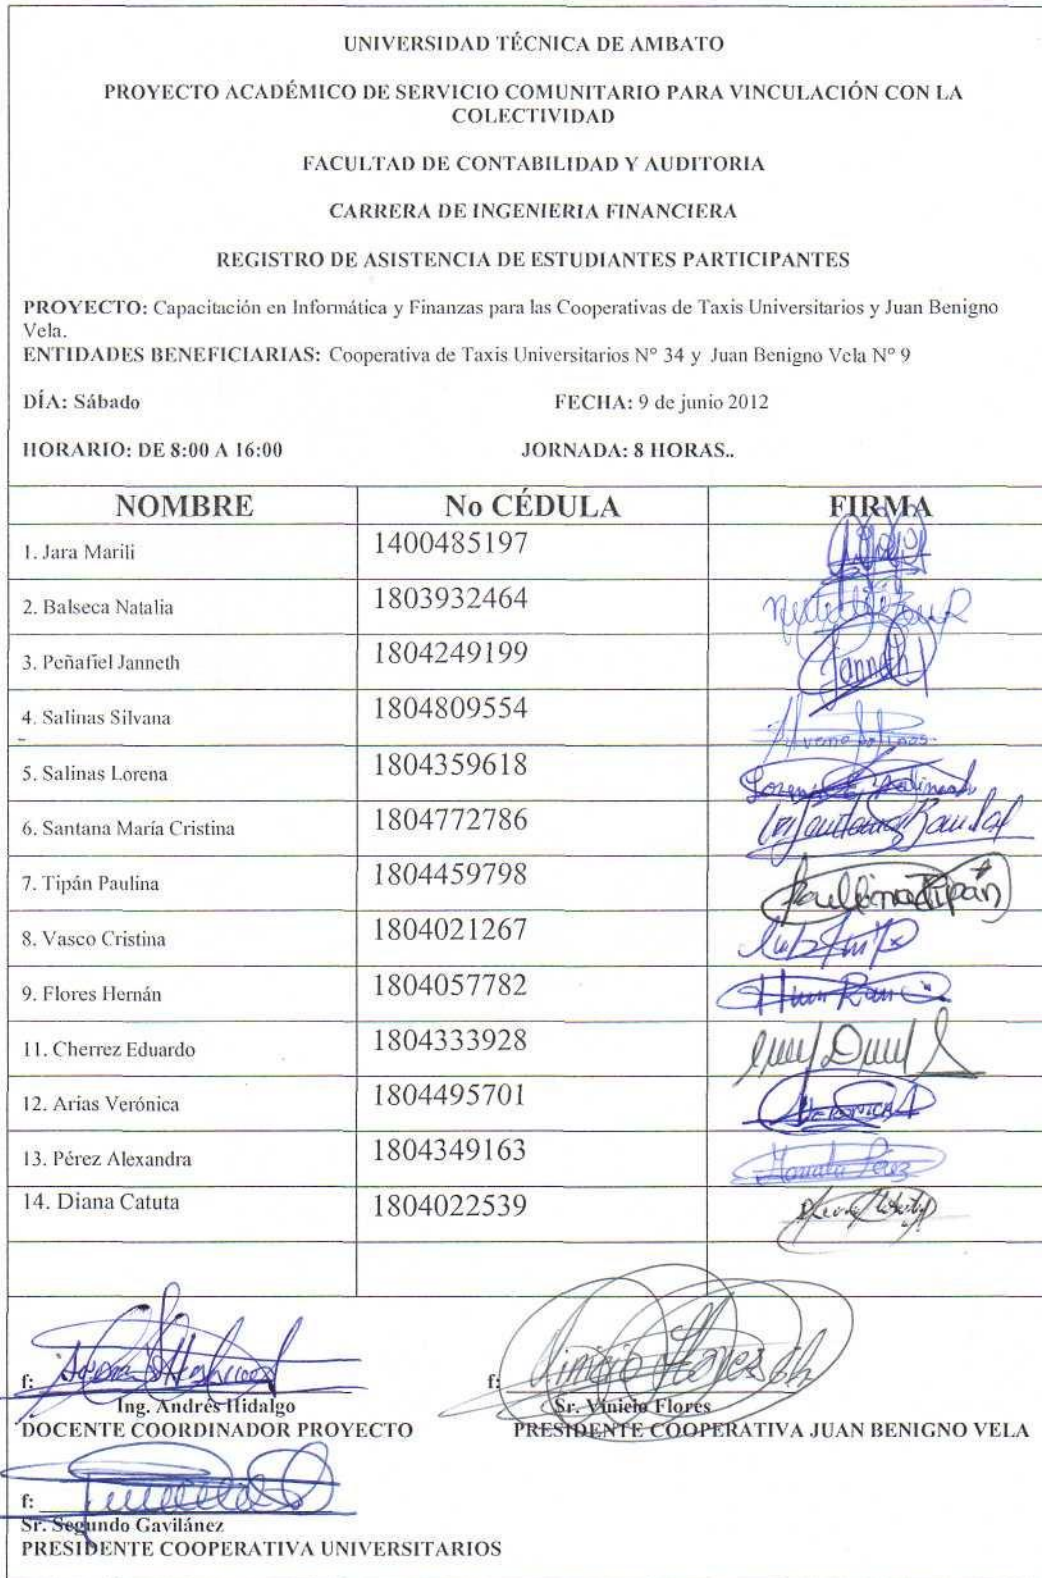 UNIVERSIDAD TÉCNICA DE AMBATO
PROYECTO ACADÉMICO DE SERVICIO COMUNITARIO PARA VINCULACIÓN CON LA
COLECTIVIDAD
FACULTAD DE CONTABILIDAD Y AUDITORIA
CARRERA DE INGENIERIA FINANCIERA
REGISTRO DE ASISTENCIA DE ESTUDIANTES PARTICIPANTES
PROYECTO: Capacitación en Informática y Finanzas para las Cooperativas de Taxis Universitarios y Juan Benigno
Vela.
ENTIDADES BENEFICIARIAS: Cooperativa de Taxis Universitarios N° 34 y Juan Benigno Vela N° 9
DÍA: Sábado FECHA: 9 de junio 2012
HORARIO: DE 8:00 A 16:00 JORNADA: 8 HORAS..
NOMBRE No CÉDULA FIRMA
1. Jara Marili 1400485197
2. Balseca Natalia 1803932464
3. Peñafiel Janneth 1804249199 Janneth
4. Salinas Silvana 1804809554
5. Salinas Lorena 1804359618 Lorena Salinas
6. Santana María Cristina 1804772786
7. Tipán Paulina 1804459798 Paulina Tipán
8. Vasco Cristina 1804021267
9. Flores Hernán 1804057782
11. Cherrez Eduardo 1804333928
12. Arias Verónica 1804495701 Veronica A
13. Pérez Alexandra 1804349163 Pérez
14. Diana Catuta 1804022539
f: f: Vinicio Flores
Ing. Andrés Hidalgo Sr. Vinicio Flores
DOCENTE COORDINADOR PROYECTO PRESIDENTE COOPERATIVA JUAN BENIGNO VELA
f:
Sr. Segundo Gavilánez
PRESIDENTE COOPERATIVA UNIVERSITARIOS